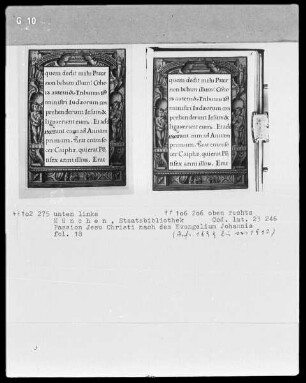 G 10
quem dedit mihi Pater
non bibam illum: Coho
rs autem & Tribunus &
ministri Iudaorum com
prehenderunt Iesum &
ligauerunt eum. Et ad
exerunt eum ad Annam
primum. Erat enim so
cer Caiphæ, qui erat Põ
tifex anni illius. Erat
quem dedit mihi Pater
non bibam illum: Coho
rs autem & Tribunus &
ministri Iudaorum com
prehenderunt Iesum &
ligauerunt eum. Et ad
exerunt eum ad Annam
primum. Erat enim so
cer Caiphæ, qui erat Põ
tifex anni illius. Erat
102 275 unten links
106 206 oben rechts
München, Staatsbibliothek Cod. lat. 23 246
Passion Jesu Christi nach dem Evangelium Johannis
fol. 18